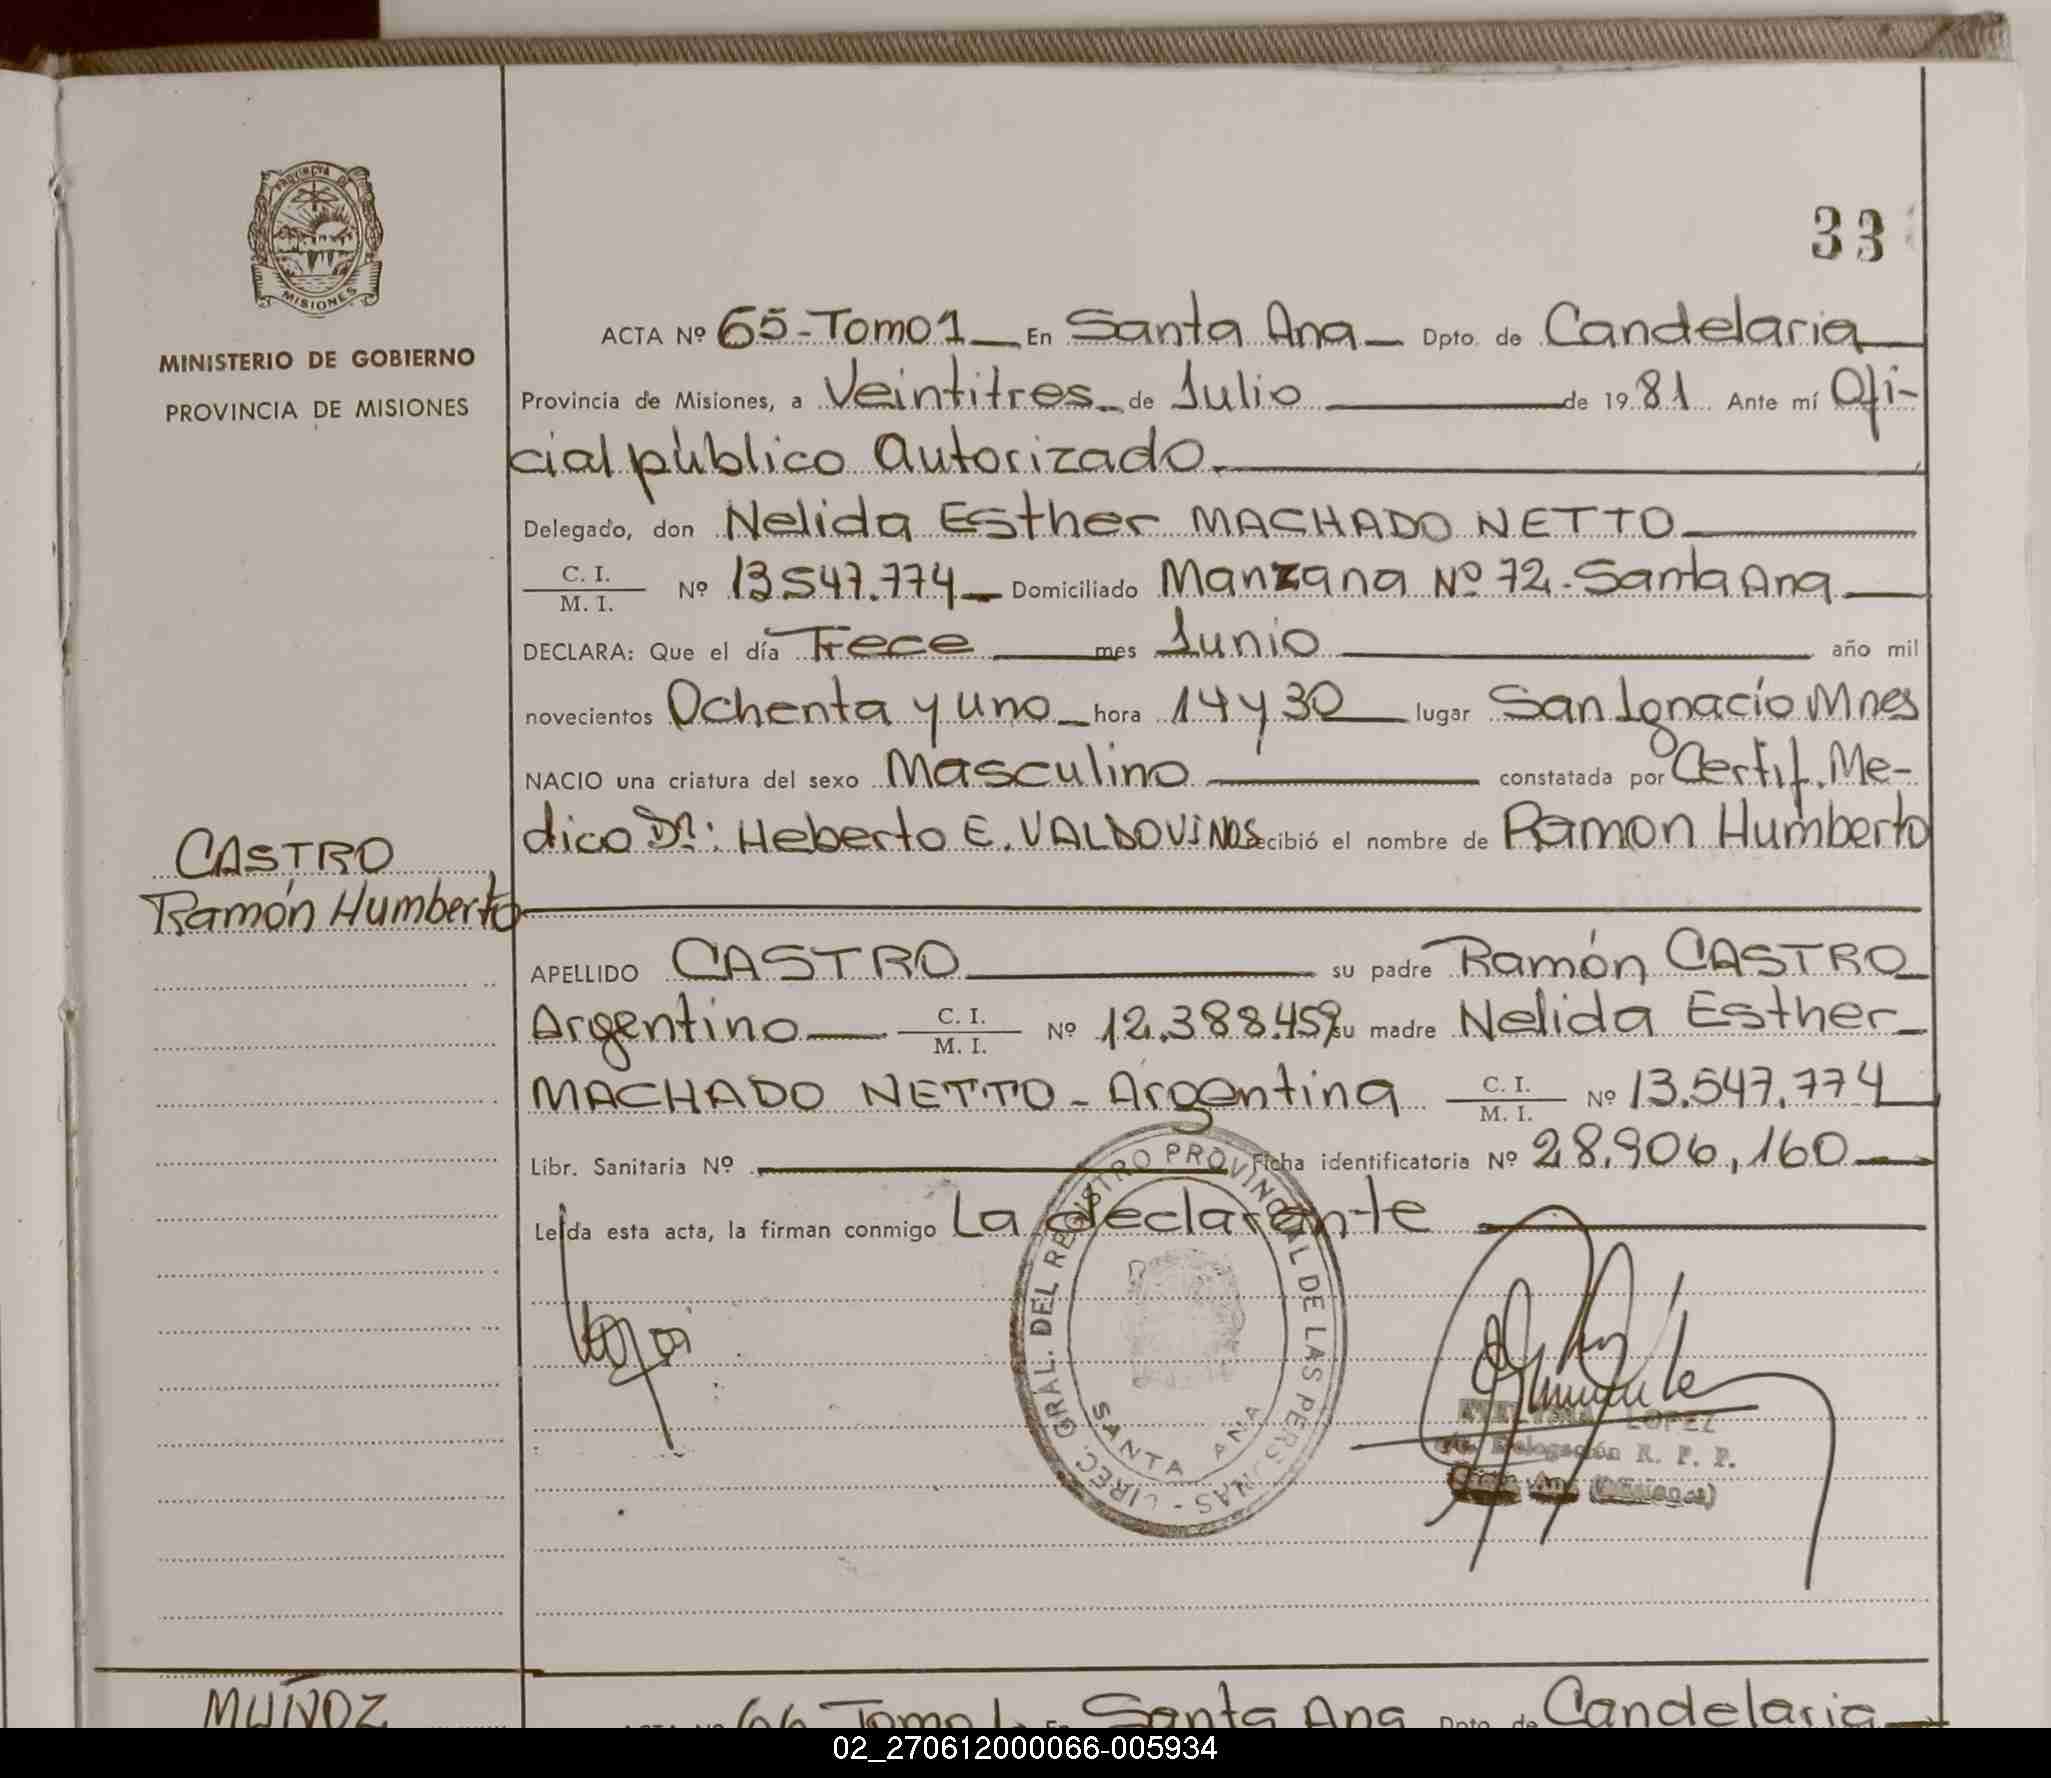 PROVINCIA DE
MISIONES
MINISTERIO DE GOBIERNO
PROVINCIA DE MISIONES
33
ACTA Nº 65-Tomo 1 En Santa Ana Dpto. de Candelaria
Provincia de Misiones, a Veintitres de Julio de 1981 Ante mí Ofi-
cial público Autorizado.
Delegado, don Nelida Esther MACHADO NETTO
C. I.
M. I. Nº 13.547.774 Domiciliado Manzana Nº 72. Santa Ana
DECLARA: Que el día Trece mes Junio año mil
novecientos Ochenta y uno hora 14 y 30 lugar San Ignacio Mnes
NACIO una criatura del sexo Masculino constatada por Certif. Me-
dico Dr: Heberto E. VALDOVINOS recibió el nombre de Ramon Humberto
CASTRO
Ramón Humberto
APELLIDO CASTRO su padre Ramón CASTRO
Argentino C. I. M. I. Nº 12.388.459 su madre Nelida Esther
MACHADO NETTO - Argentina C. I. M. I. Nº 13.547.774
Libr. Sanitaria Nº Ficha identificatoria Nº 28.906,160
Leída esta acta, la firman conmigo La declarante
DIREC. GRAL. DEL REGISTRO PROVINCIAL DE LAS PERSONAS -
SANTA ANA
LOPEZ
Delegación R. P. P.
Santa Ana (Misiones)
MUÑOZ
ACTA Nº 66 Tomo 1. En Santa Ana Dpto. de Candelaria
02_270612000066-005934